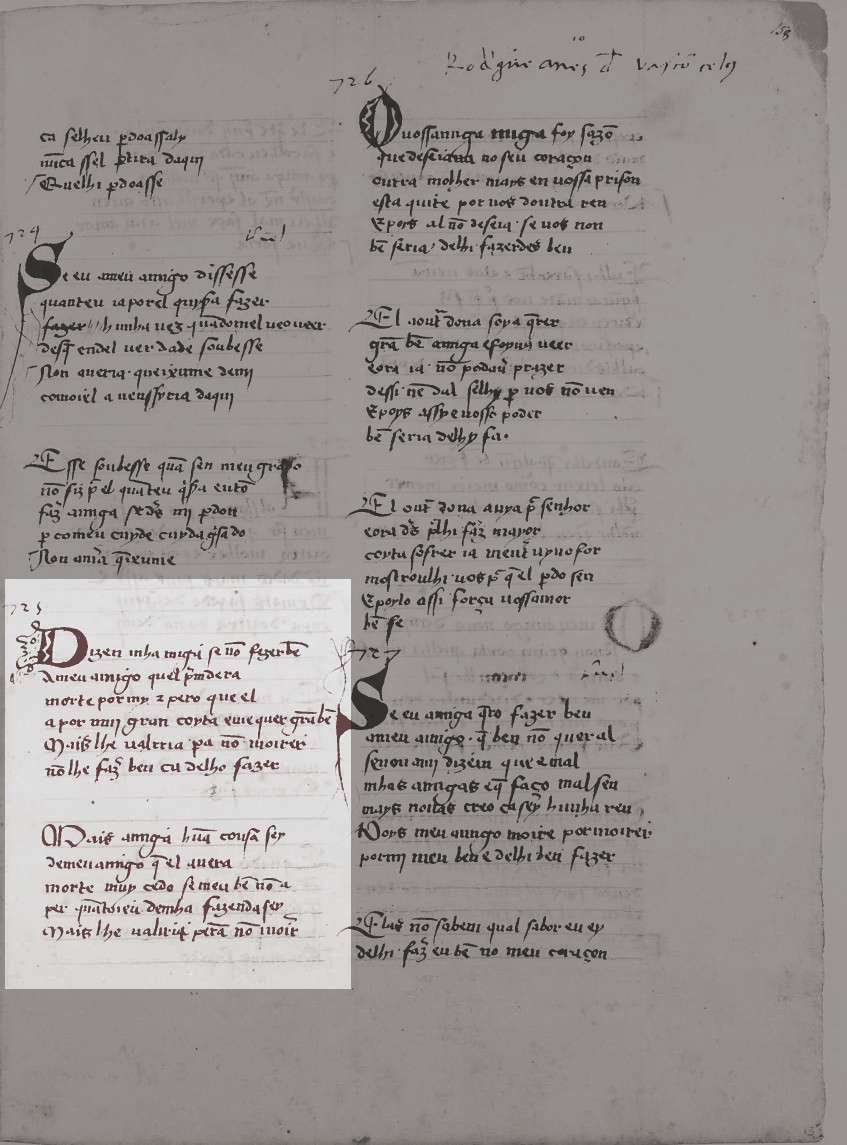 158
Rodrigue anes d vasconcelos
726
ca selheu ꝑdoassaly
nūca ssel ꝑtira daquj
Quelhi ꝑdoasse
724
Se eu ameu amigo dissesse
quanteu ia porel quyſa fazer
fazer hunha uez quādomel ueo ueer
desq̄ endel uerdade soubesse
Non aueria queixume demj
comoiel a
daquj
E sse soubesse quā sen meu grado
nō fiz ꝑ el quāteu
faz amiga se ds mj ꝑdon
ꝑ comeu cuyde cuyda
Non queixume
725
Dizen mha migā se nō fezerbē
A meu amigo quel
morte por my ⁊ pero que el
a por min gran coyta e me quer grā bē
Mais lhe ualrria pa nō moirer
nō lhe faz ben ca delho fazer
Mais amiga hūa cousa sey
demeu amigo q̄ el auera
morte muy cedo se meu bē nō a
per quātoieu demha fazenda sey
Mais lhe ualiria perā nō moir
Quossamiga miga foy sazō
que deseiaua no seu coraçon
outra molher mays en uossa prison
esta quite por uos doutra ren
E poys al nō deseia se uos non
bē seria delhi fazerdes ben
El aout dona soya q̄rer
grā bē amiga e foyun ueer
e ora ia nō podau prazer
dessi nē dal selhy ꝑ uos nō uen
E poys assy e uosso poder
bē seria delhy fa.
El out dona auya pꝛ senhor
e ora ds plhi faz mayor
coyta sofrer ia
mostroulhi uos
E poylo assi força uossamor
bē se
727
Se eu amiga q̄ro fazer ben
ameu amigo q̄ ben nō quer al
senon a mj dizem que e mal
mhas amigas e q̄ faço mal sen
mays nō nas creo ca sey hunha ren
Poys meu amigo moire por moirer
por mj meu ben e delhi ben fazer
Elas nō sabem qual sabor eu ey
delhi faz eu bē no meu coraçon